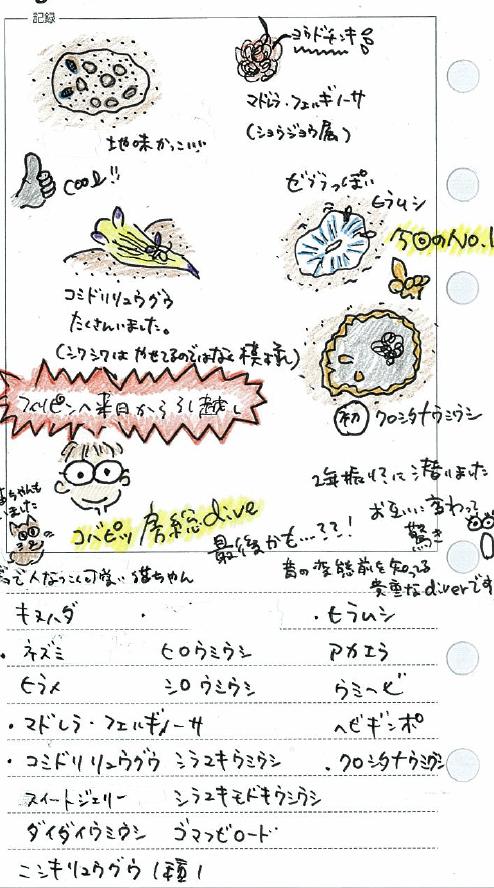 記録
ヨウドチンキ色
マドレラ・フェルギノーサ
(ショウジョウ属)
地味かっこいい
cool!!
ゼブラっぽい
ヒラムシ
今回のNo.1
コミドリリュウグウ
たくさんいました。
(シワシワはやせてるのではなく模様)
フィリピンへ来月から引っ越し
初 クロシタナウミウシ
2年振りに潜りました
お互いに変わって
驚き
ちゃんも
いました
コバピッ 房総dive
最後かも...??!
昔の変態前を知ってる
貴重なdiverです
人なつこく可愛い猫ちゃん
キヌハダ
・ヒラムシ
・ネズミ ヒロウミウシ アカエラ
ヒラメ シロウミウシ ウミヘビ
・マドレラ・フェルギノーサ ヘビギンポ
・コミドリリュウグウ シラユキウミウシ ・クロシタナウミウシ
スイートジェリー シラユキモドキウミウシ
ダイダイウミウシ ゴマフビロード
ニシキリュウグウ1種1